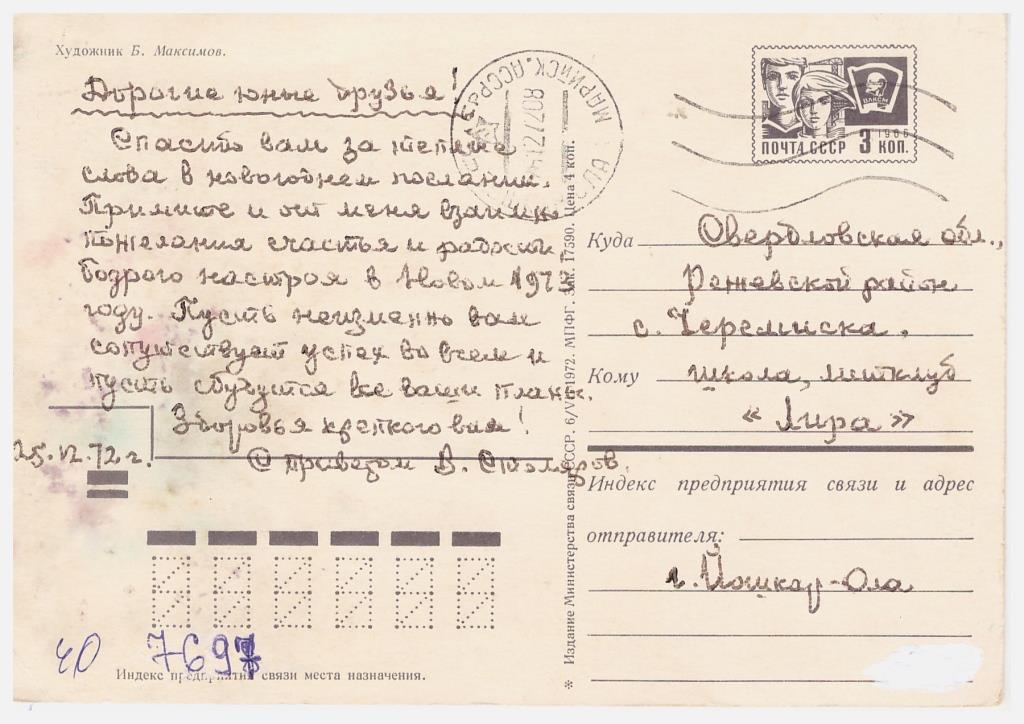 Художник Б. Максимов.
Дорогие юные друзья!
Спасибо вам за теплые
слова в новогоднем послании.
Примите и от меня взаимные
пожелания счастья и радости
бодрого настроя в Новом 1973
году. Пусть неизменно вам
сопутствует успех во всем и
пусть сбудутся все ваши планы.
Здоровья крепкого вам!
25.12.72 г.
С приветом В. Столяров.
Индекс предприятия связи места назначения.
40 769
Издание Министерства связи СССР. 1972. МПФГ. Зак. 17590. Цена 4 коп.
МАРИЙСК. АССР
ПОЧТА СССР 3 КОП.
1966
ВЛКСМ
Куда Свердловская обл.,
Режевской район
с. Черемисска.
Кому школа, литклуб
« Лира »
Индекс предприятия связи и адрес
отправителя:
г. Йошкар-Ола